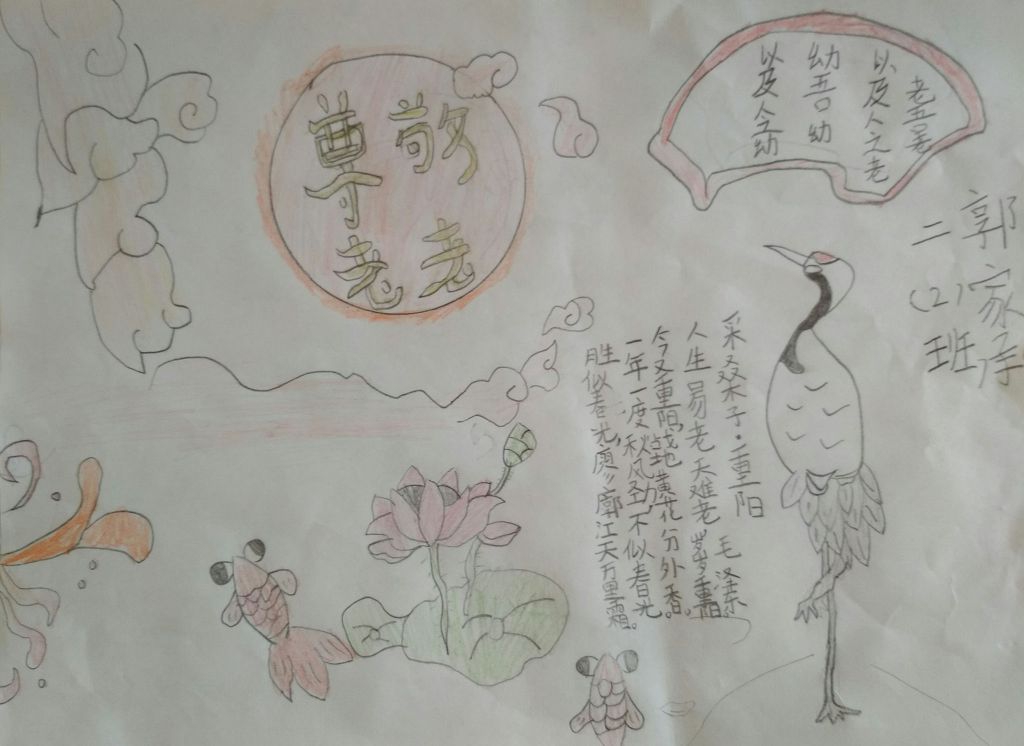 敬老
尊老
老吾老
以及人之老
幼吾幼
以及人之幼
郭家
二(2)班
采桑子·重阳
毛泽东
人生易老天难老岁岁重阳。
今又重阳,战地黄花分外香。
一年一度秋风劲,不似春光
胜似春光,廓江天万里霜。